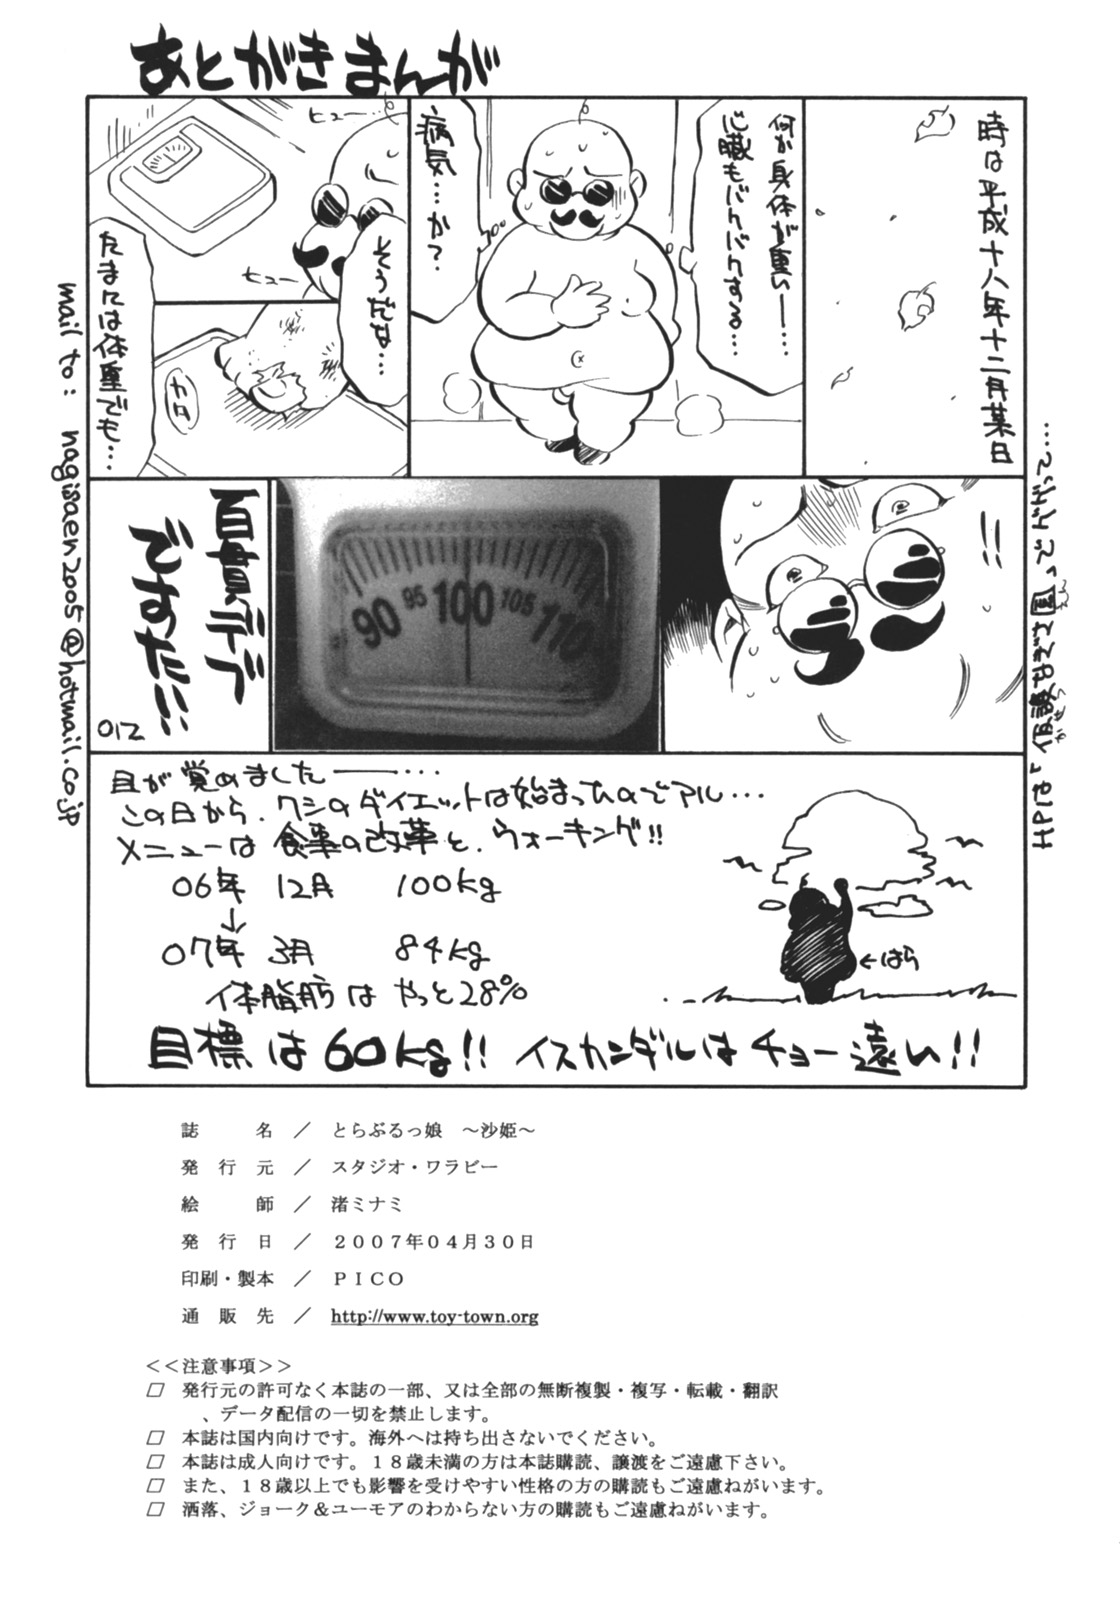 あとがきまんが
時は平成十八年十二月某日
何か身体が重いー…
心臓もバクバクする…
病気…か?
ヒュー…
ヒュー
そうだな…
たまには体重でも…
カタ
!!
90 95 100 105 110
百貫デブ
ですた!!
012
目が覚めました――…
この日から、ワシのダイエットは始まったのでアル…
メニューは食事の改革と、ウォーキング!!
06年 12月 100kg
↓
07年 3月 84kg
体脂肪はやっと28%
←はら
目標は60kg!! イスカンダルはチョー遠い!!
mail to: nagisaen2005@hotmail.co.jp
誌名／とらぶるっ娘 ～沙姫～
発行元／スタジオ・ワラビー
絵師／渚ミナミ
発行日／２００７年０４月３０日
印刷・製本／ＰＩＣＯ
通販先／http://www.toy-town.org
＜＜注意事項＞＞
□ 発行元の許可なく本誌の一部、又は全部の無断複製・複写・転載・翻訳
、データ配信の一切を禁止します。
□ 本誌は国内向けです。海外へは持ち出さないでください。
□ 本誌は成人向けです。１８歳未満の方は本誌購読、譲渡をご遠慮下さい。
□ また、１８歳以上でも影響を受けやすい性格の方の購読もご遠慮ねがいます。
□ 洒落、ジョーク＆ユーモアのわからない方の購読もご遠慮ねがいます。